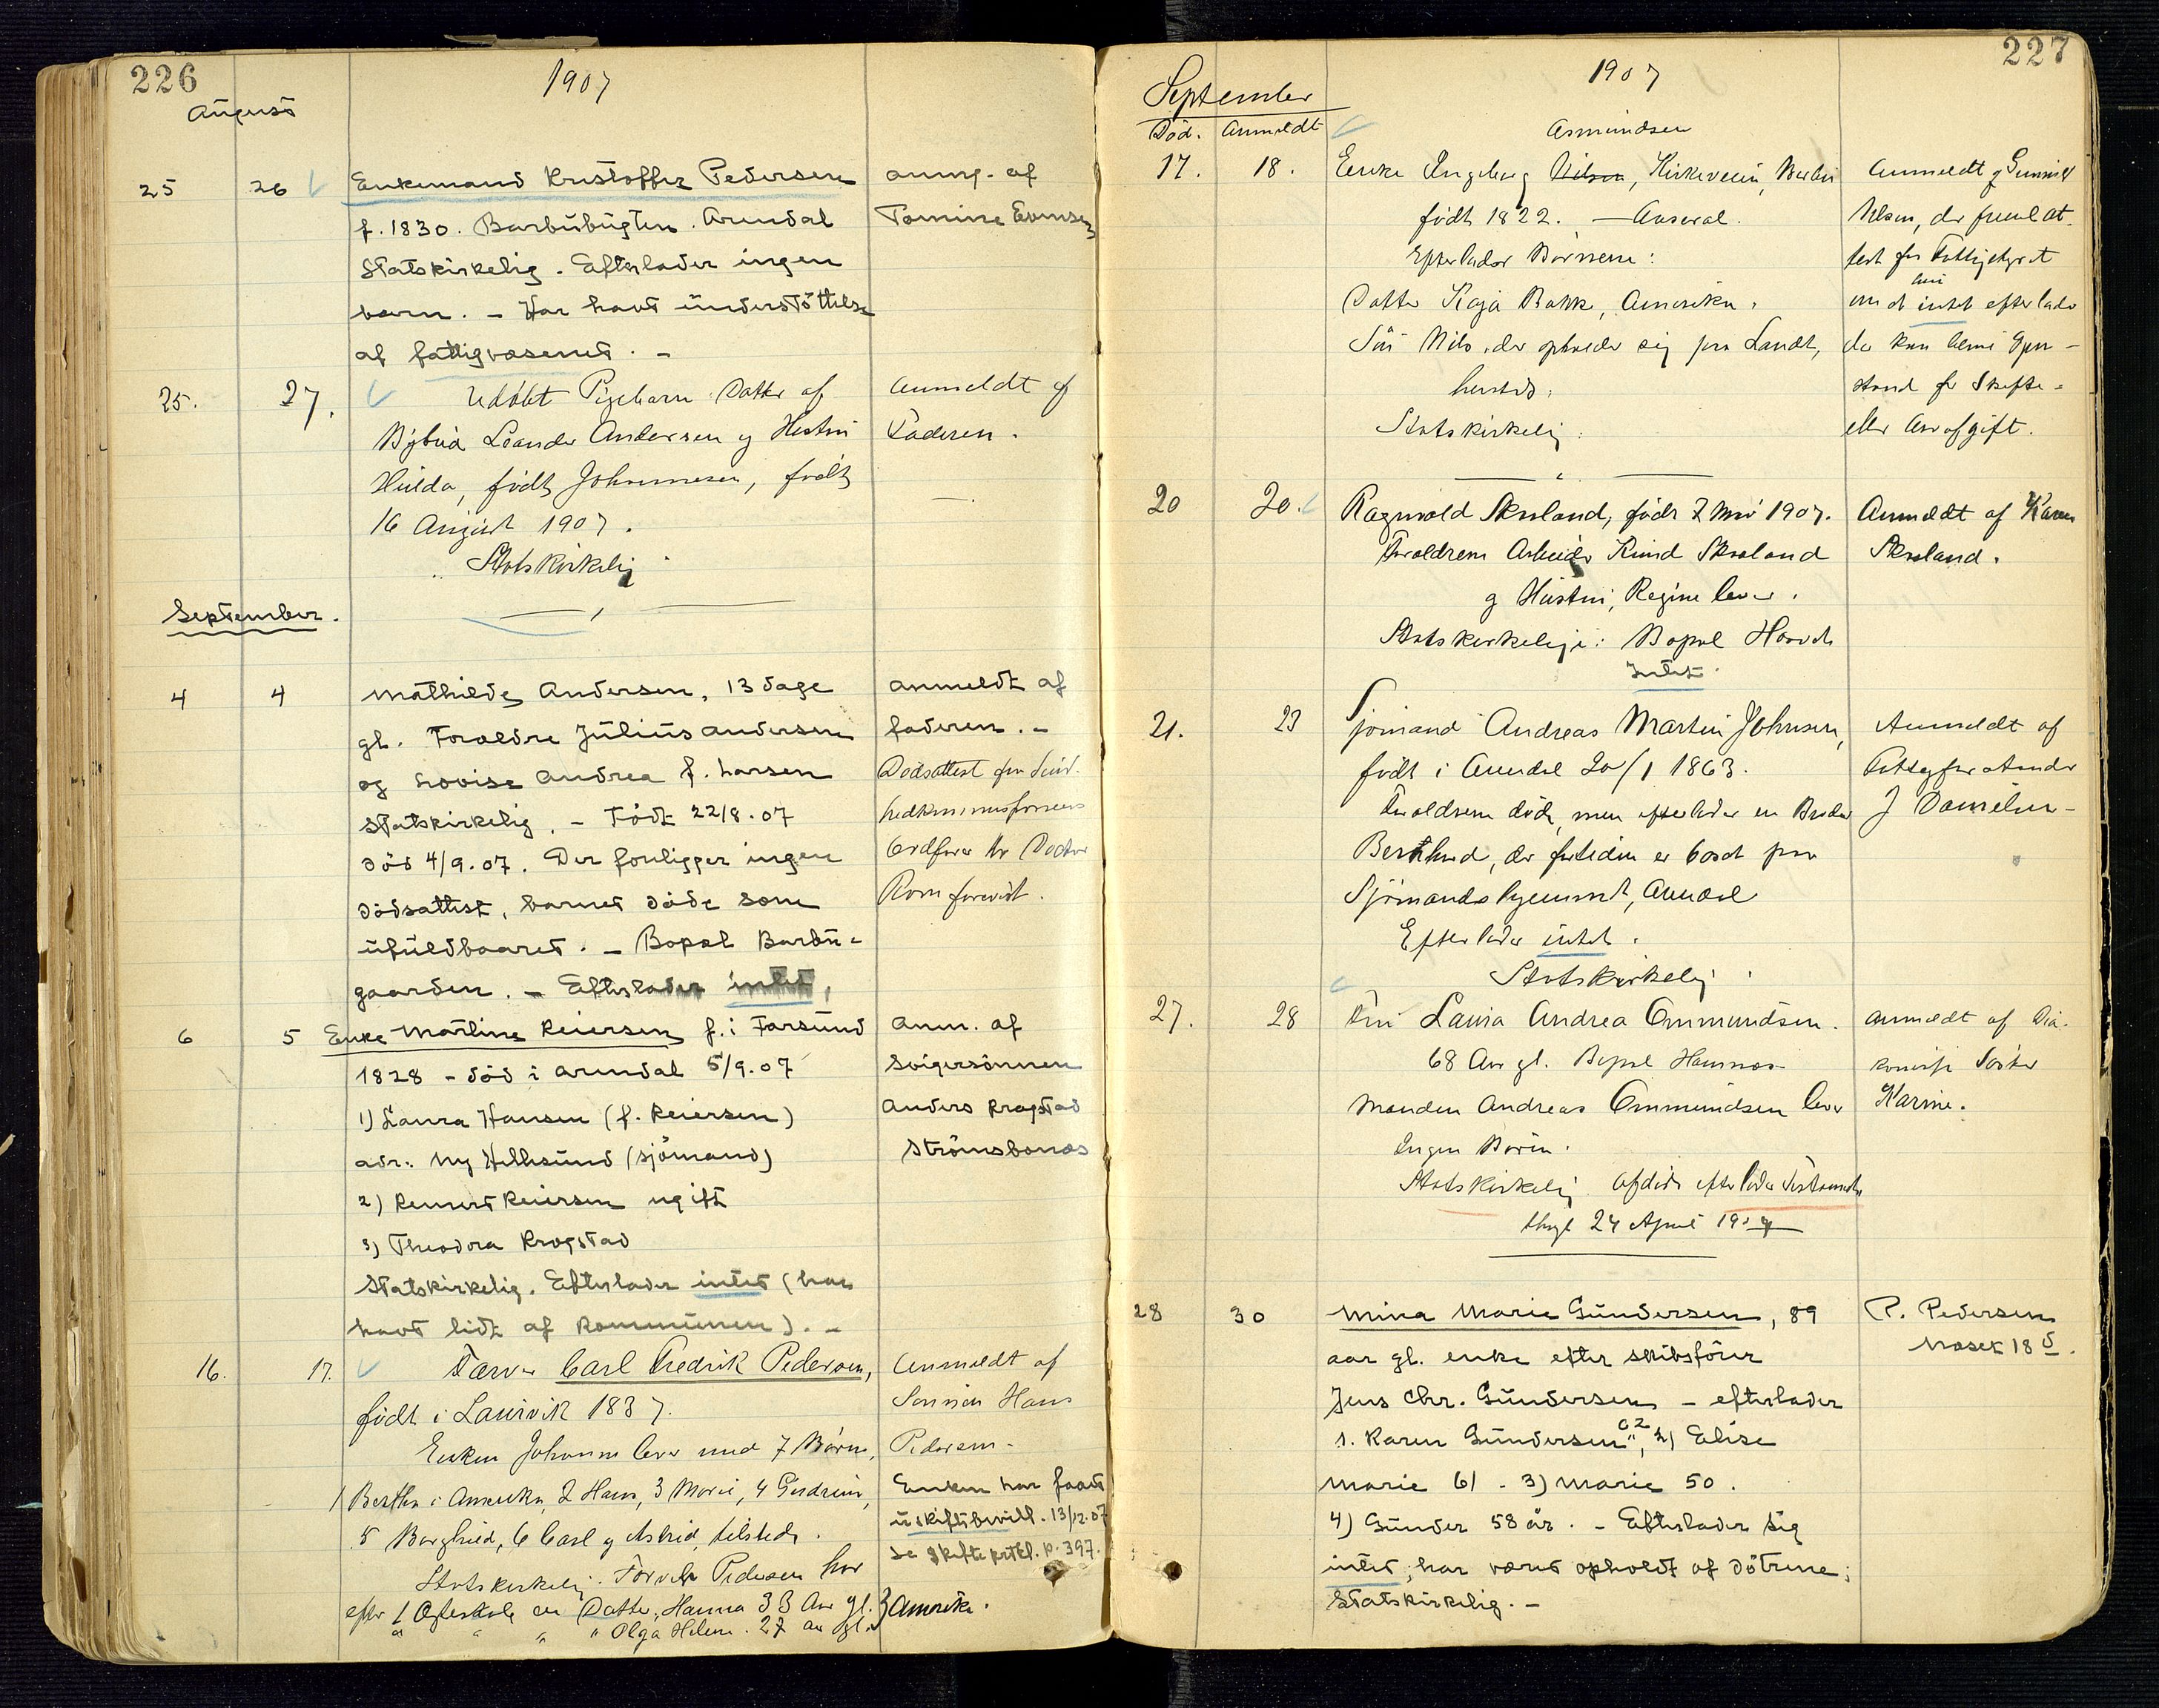 226
1907
August
25 26 Enkemand Kristoffer Pedersen
f. 1830. Barbubugten. Arendal
Statskirkelig. Efterlader ingen
børn. - Har havt understöttelse
af fattigvæsenet. -
anm. af
Tomine Evensen
25. 27. Udöbt Pigebarn Datter af
Bybud Leander Andersen og Hustru
Hulda, født Johannesen, født
16 August 1907.
Statskirkelig
Anmeldt af
Faderen.
September.
4 4 Mathilde Andersen, 13 dage
gl. Foraldre Julius Andersen
og Lovise Andrea f. Larsen
Statskirkelig. - Födt 22/8.07
död 4/9.07. Der foreligger ingen
dödsattest, barnet döde som
ufuldbaaret. - Bopæl Barbu-
gaarden. - Efterlader intet,
anmeldt af
faderen. -
Dödsattest fra Sund-
hedskommissionens
Ordfører Hr Doctor
Rom forevist.
6 5 Enke Martine Reiersen f. i Farsund
1828 - död i Arendal 5/9.07
1) Laura Hansen (f. Reiersen)
adr: Ny Hellesund (sjömand)
2) Reinert Reiersen ugift
3) Theodora Krogstad
Statskirkelig. Efterlader intet (har
havt lidt af kommunen). -
Anm. af
Svigersönnen
Anders Krogstad
Strömsbonæs
16. 17. Farver Carl Fredrik Pedersen,
født i Laurvik 1837.
Enken Johanne lever med 7 Børn,
1 Bertha i Amerika, 2 Hans, 3 Marie, 4 Gudrun,
5 Borghild, 6 Carl og Astrid, tilstede.
Statskirkelig. Farver Pedersen har
efter 1 Ægteskab en Datter, Hanna 33 Aar gl.
" " " " Olga Helene. 27 aar gl.
} Amerika.
Anmeldt af
Sønnen Hans
Pedersen-
Enken har faaet
uskiftebevill. 13/12.07
Se Skifteprtkl. p. 397.
227
1907
September
Död. Anmeldt
17. 18. Enke Ingeborg Nilsen, Kirkeveien, Barbu
Asmundsen
født 1822. - Auseral.
Efterlader Børnene:
Datter Kaja Bakk, Amerika,
Sön Nils, der opholder sig paa Landet,
hersteds.
Statskirkelig.
Anmeldt af Gunnild
Nilsen, der freml. at-
test fra Fattigstyret
om at hun intet efterlader
der kan blive Gjen-
stand for Skifte-
eller Arveafgift.
20 20. Ragnvald Skreland, født 7 Mai 1907.
Forældrene Arbeider Knud Skreland
og Hustru, Regine lever.
Statskirkelige: Bopæl Hasvde
Intet
Anmeldt af Karen
Skreland.
21. 23 Sjømand Andreas Martin Johnsen,
født i Arendal 20/1 1863.
Forældrene døde, men efterlader en Broder
Bernhard, der fortiden er bosat paa
Sjømandshjemmet, Arendal
Efterlader intet.
Statskirkelig
Anmeldt af
Fattigforstander
J Danielsen-
27. 28 Fru Laura Andrea Ommundsen.
68 Aar gl. Bopæl Havnæs
Manden Andreas Ommundsen lever
Ingen Børn.
Statskirkelig. Afdøde efterlader Testamente
thgl 24 April 1907
Anmeldt af Dia-
konisse Søster
Karine.
28 30 Mina Marie Gundersen, 89
aar gl. enke efter skibsförer
Jens Chr. Gundersen - efterlader
1. Karen Gundersen 62, 2) Elise
Marie 61 - 3) Marie 50.
4) Gunder 58 år. - Efterlader sig
intet; har været opholdt af dötrene;
Statskirkelig. -
P. Pedersen
18